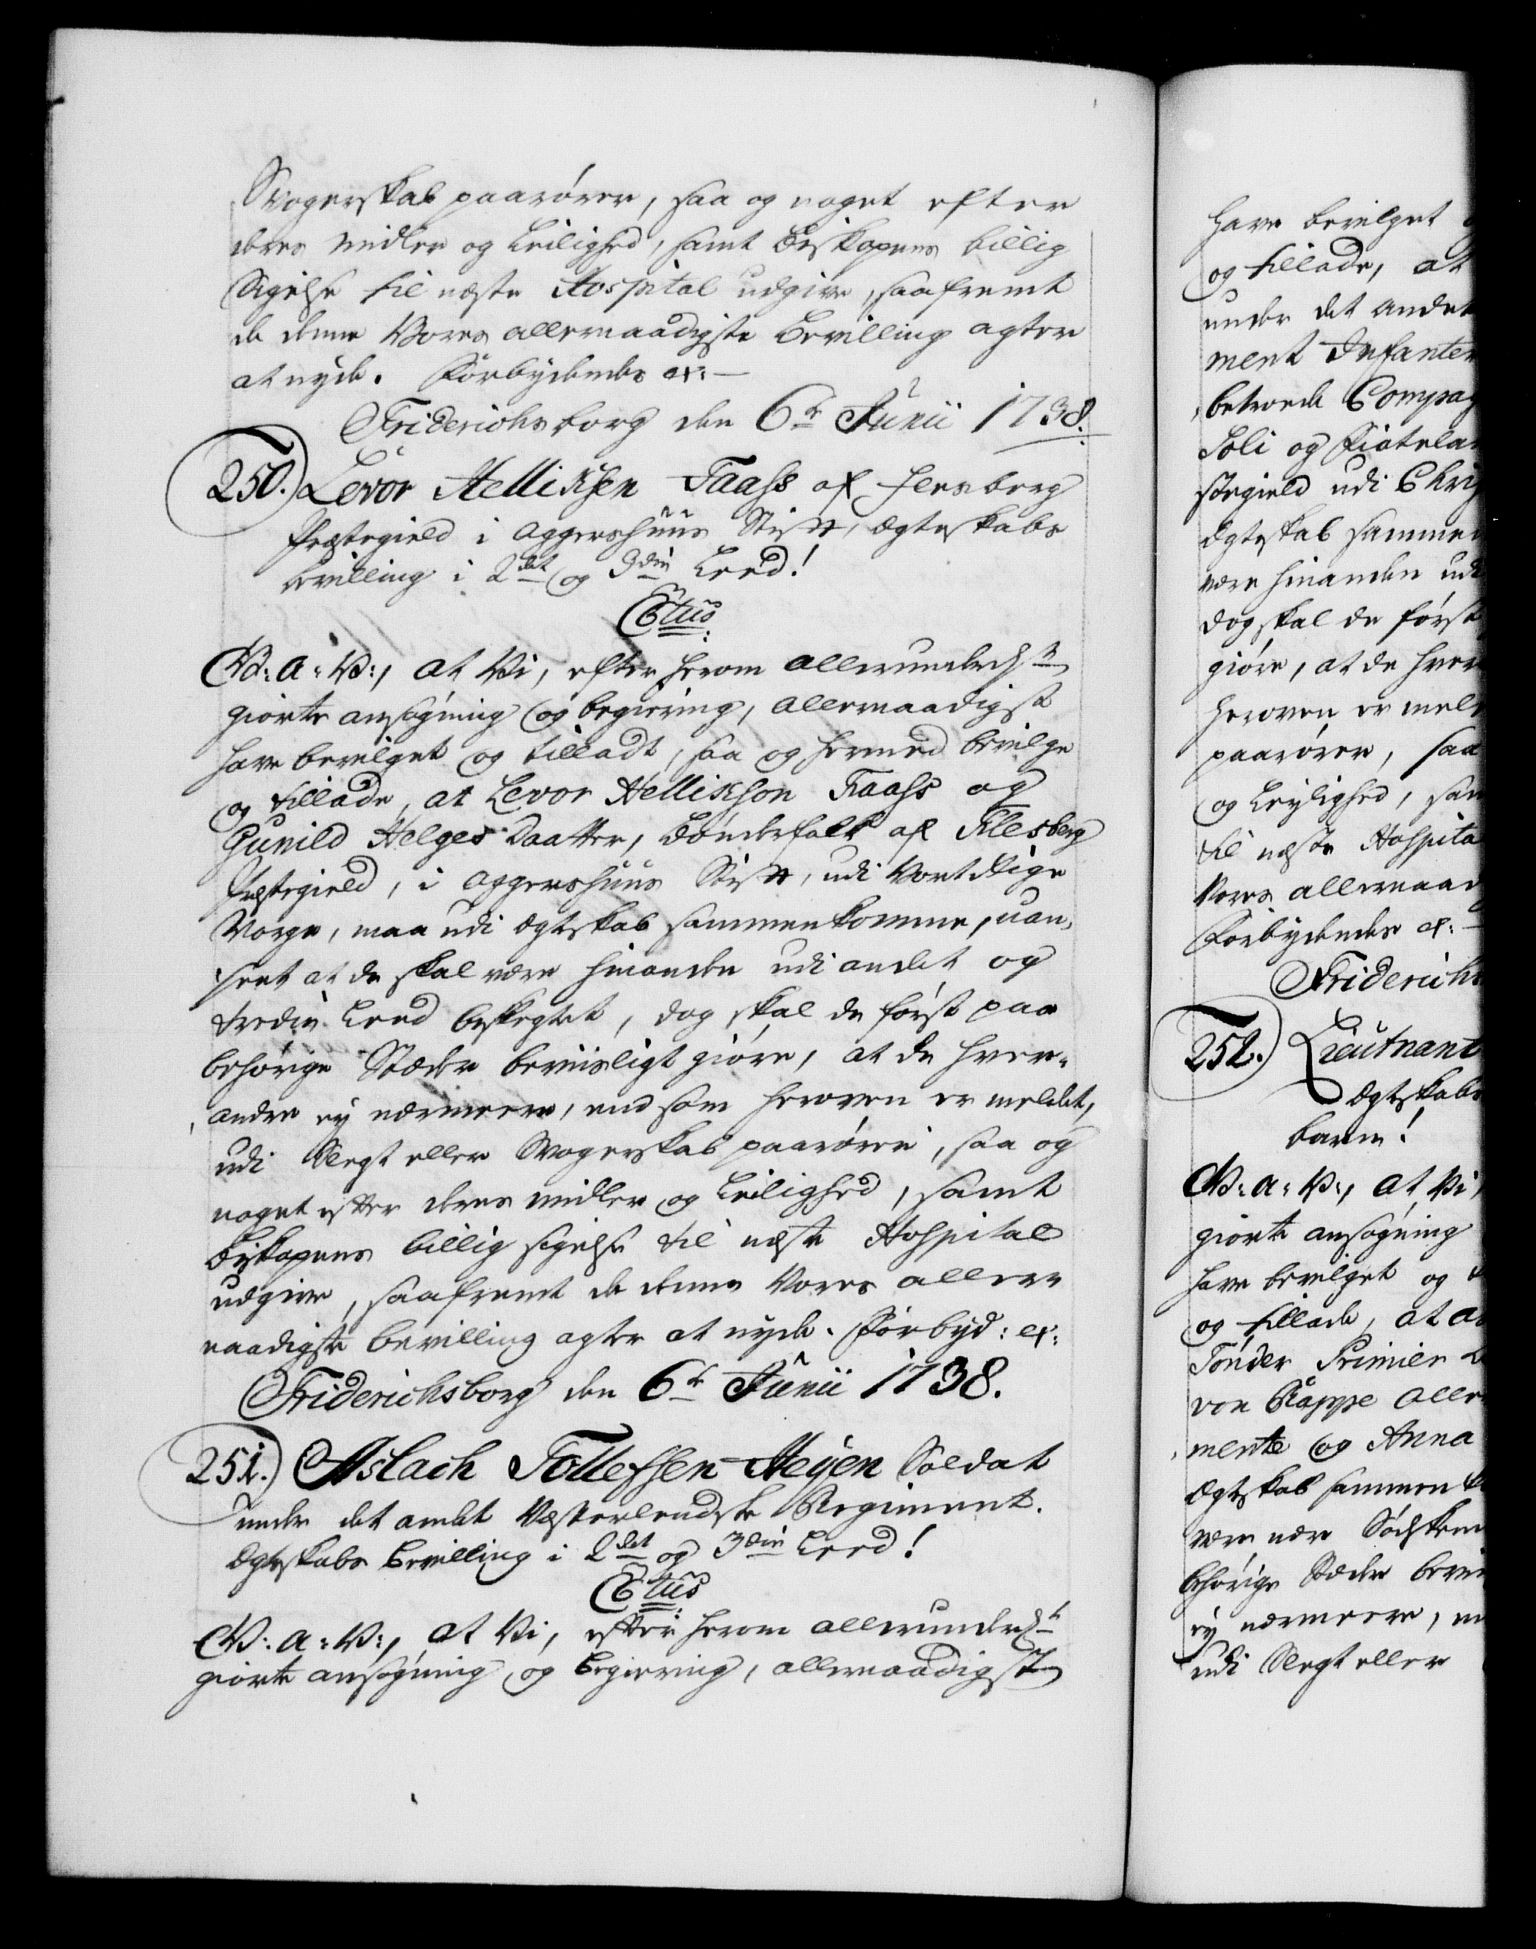 Svogerskab paarører, saa og noget efter
deres midler og Leilighed, samt Biskopens billig
Sigelse til næste Hospital udgive, saafremt
de denne Vores allernaadigste Bevilling agter
at nyde. Forbydendes etc:
Friderichsborg den 6te Junii 1738.
250.) Levor Helliksen Faass af Flesberg
Præstegield i Aggershuus Stift, Ægteskabs
bevilling i 2det og 3die Leed!
C6tus
V: A: V:, at Vi, efter herom allerunderdste
giorte ansøgning og begiering, allernaadigst
have bevilget og tilladt, saa og hermed bevilge
og tillade, at Levor Hellikson Faass og
Gunild Helges Daatter, Bønderfolk af Flesberg
Præstegield, i Aggershuus Stift, udi Vort Rige
Norge, maa udi Ægteskab sammenkomme, uan-
seet at de skal være hinanden udi andet og
tredie Leed beslegtet, dog skal de først paa
behørige Stæder beviisligt giøre, at de hver-
andre ey nærmere, end som heroven er meldet,
udi Slegt eller Svogerskab paarører, saa og
noget efter deres midler og Leilighed, samt
Biskopens billig sigelse til næste Hospital
udgive, saafremt de denne Vores aller-
naadigste bevilling agter at nyde. Forbyd: etc:
Friderichsborg den 6te Junii 1738.
251.) Aslach Tollefsen Heyen Soldat
under det andet Vesterlendske Regiment.
Ægteskabs Bevilling i 2det og 3die Leed!
C6tus
V: A: V:, at Vi, efter herom allerunderdste
giorte ansøgning og begiering, allernaadigst
have bevilget
og tillade, at
under det andet
ment Infanter
betroede Compag
Soli og
stegield udi Chri
Ægteskab sammen
være hinanden udi
dog skal de først
giøre, at de hver
heroven er meld
paarører, saa
og Leylighed, sam
til næste Hospita
Vores allernaad
Forbydendes etc:
Friderichs
252.) Lieutnant
Ægteskabs
barn!
V: A: V:, at Vi,
giorte ansøgning
have bevilget og
og tillade, at
Tønder Primier
von Kappe aller
mente og Anna
Ægteskab sammen
være nær Sødsken
behørige Stæder bevii
ey nærmere, en
udi Slegt eller